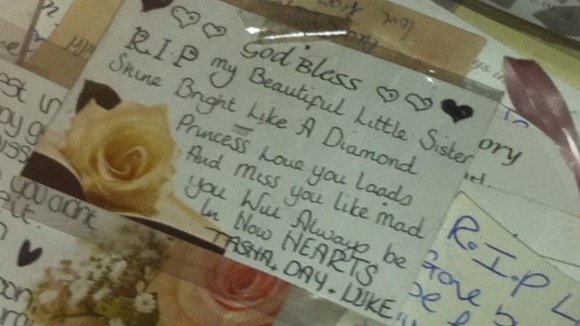 God Bless
R.I.P my Beautiful Little Sister
Shine Bright Like A Diamond
Princess Love you Loads
And Miss you like mad
you Will Always be
In Now HEARTS
TASHA, DAY, LUKE
ory
R.I.P L
Gone b